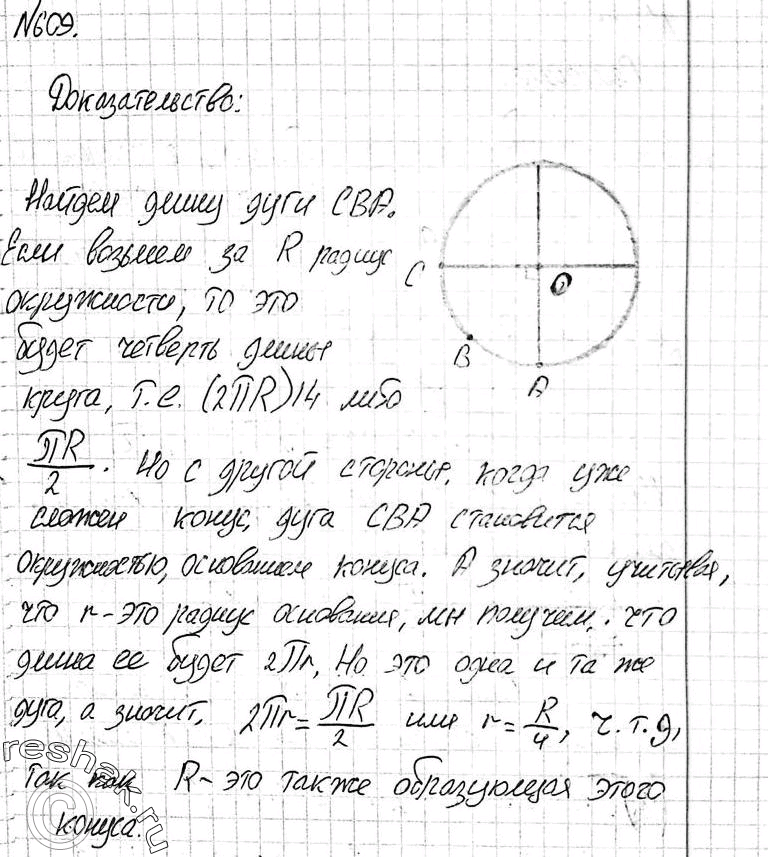 №609.
Доказательство:
Найдем длину дуги CBA.
Если возьмем за R радиус
окружности, то это
будет четверть длины
круга, т.е. (2ПR)/4 либо
ПR/2. Но с другой стороны, когда уже
сложен конус, дуга CBA становится
окружностью, основанием конуса. А значит, учитывая,
что r - это радиус основания, мы получем, что
длина ее будет 2Пr, Но это одна и та же
дуга, а значит, 2Пr = ПR/2 или r = R/4, ч.т.д,
Так как R - это также образующая этого
конуса.
C
O
B
A
reshak.ru
©